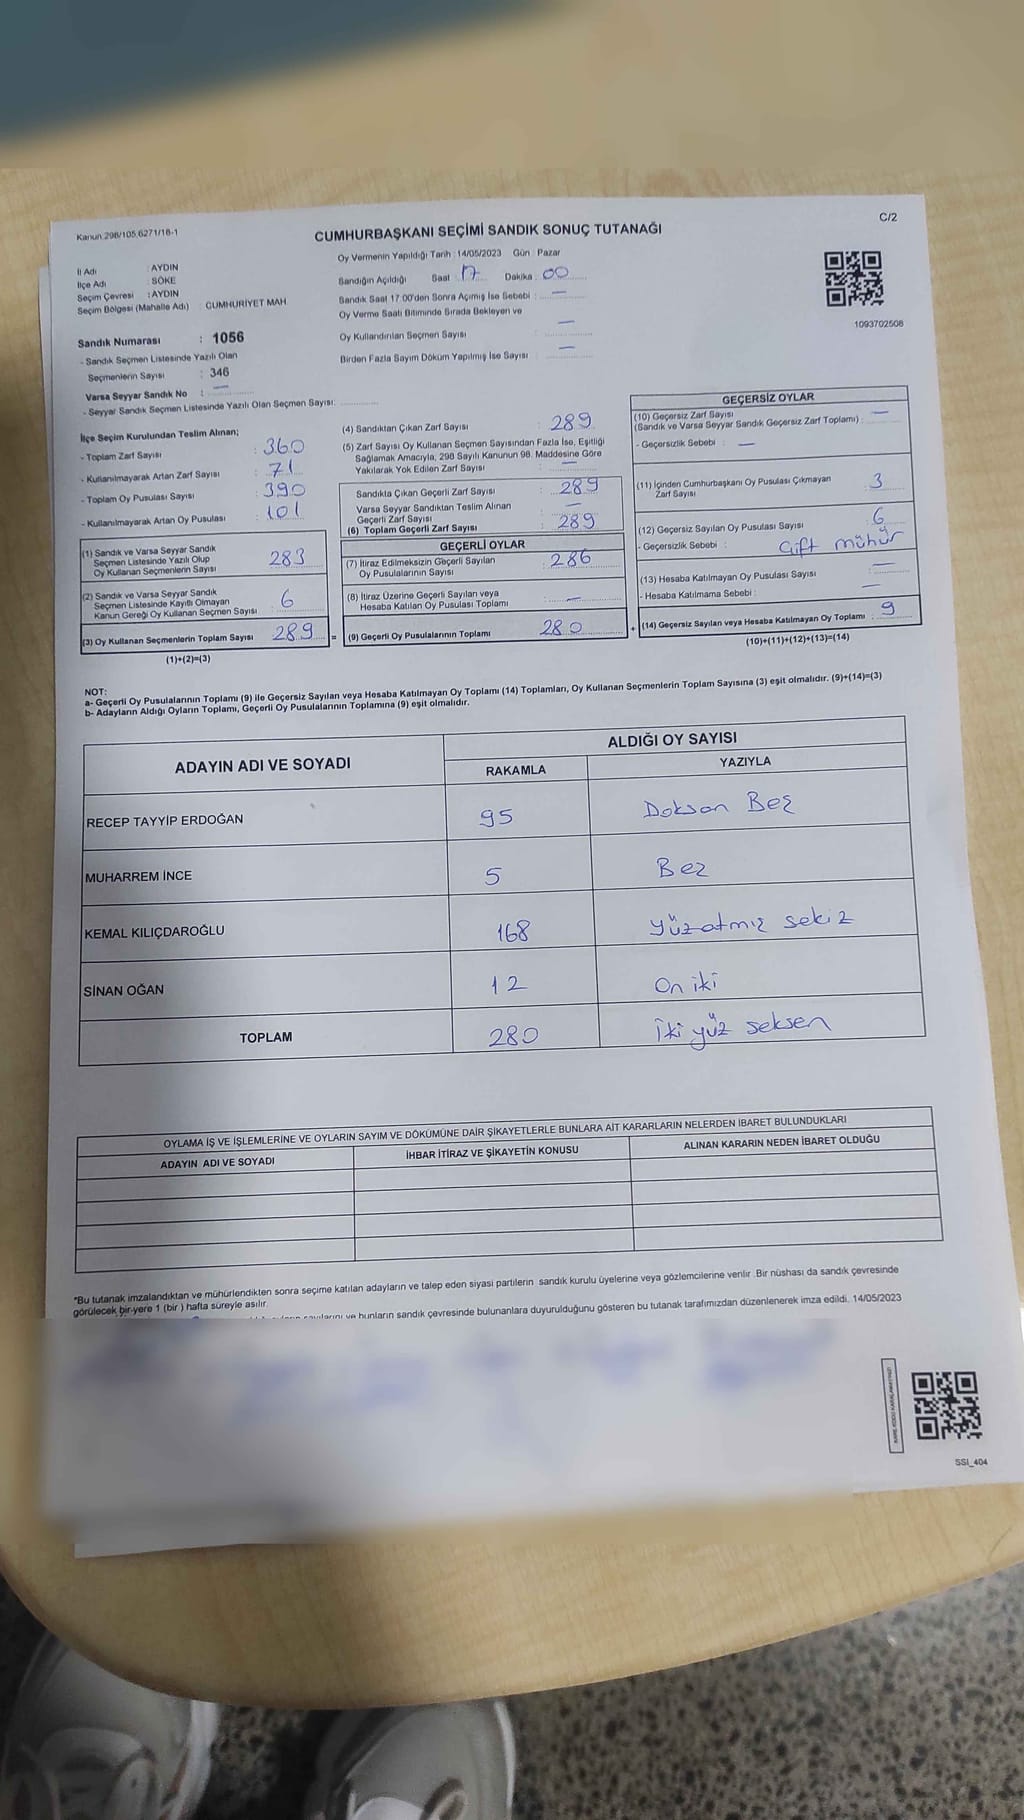 Kanun 298/105,6271/18-1
C/2
CUMHURBAŞKANI SEÇİMİ SANDIK SONUÇ TUTANAĞI
İl Adı : AYDIN
İlçe Adı : SÖKE
Seçim Çevresi : AYDIN
Seçim Bölgesi (Mahalle Adı) : CUMHURİYET MAH
Oy Vermenin Yapıldığı Tarih : 14/05/2023 Gün : Pazar
Sandığın Açıldığı Saat : 17 Dakika : 00
Sandık Saat 17:00'den Sonra Açımış İse Sebebi : —
Oy Verme Saati Bitiminde Sırada Bekleyen ve
Oy Kullandırılan Seçmen Sayısı : —
Birden Fazla Sayım Döküm Yapılmış İse Sayısı : —
1093702508
Sandık Numarası : 1056
- Sandık Seçmen Listesinde Yazılı Olan
Seçmenlerin Sayısı : 346
Varsa Seyyar Sandık No : —
- Seyyar Sandık Seçmen Listesinde Yazılı Olan Seçmen Sayısı:
İlçe Seçim Kurulundan Teslim Alınan;
- Toplam Zarf Sayısı : 360
- Kullanılmayarak Artan Zarf Sayısı : 71
- Toplam Oy Pusulası Sayısı : 390
- Kullanılmayarak Artan Oy Pusulası : 101
(1) Sandık ve Varsa Seyyar Sandık
Seçmen Listesinde Yazılı Olup
Oy Kullanan Seçmenlerin Sayısı : 283
(2) Sandık ve Varsa Seyyar Sandık
Seçmen Listesinde Kayıtlı Olmayan
Kanun Gereği Oy Kullanan Seçmen Sayısı : 6
(3) Oy Kullanan Seçmenlerin Toplam Sayısı : 289 =
(1)+(2)=(3)
(4) Sandıktan Çıkan Zarf Sayısı : 289
(5) Zarf Sayısı Oy Kullanan Seçmen Sayısından Fazla İse, Eşitliği
Sağlamak Amacıyla, 298 Sayılı Kanunun 98. Maddesine Göre
Yakılarak Yok Edilen Zarf Sayısı : —
Sandıkta Çıkan Geçerli Zarf Sayısı : 289
Varsa Seyyar Sandıktan Teslim Alınan
Geçerli Zarf Sayısı : —
(6) Toplam Geçerli Zarf Sayısı : 289
GEÇERLİ OYLAR
(7) İtiraz Edilmeksizin Geçerli Sayılan
Oy Pusulalarının Sayısı : 286
(8) İtiraz Üzerine Geçerli Sayılan veya
Hesaba Katılan Oy Pusulası Toplamı : —
(9) Geçerli Oy Pusulalarının Toplamı : 280 +
GEÇERSİZ OYLAR
(10) Geçersiz Zarf Sayısı
(Sandık ve Varsa Seyyar Sandık Geçersiz Zarf Toplamı) : —
- Geçersizlik Sebebi : —
(11) İçinden Cumhurbaşkanı Oy Pusulası Çıkmayan
Zarf Sayısı : 3
(12) Geçersiz Sayılan Oy Pusulası Sayısı : 6
- Geçersizlik Sebebi : Çift mühür
(13) Hesaba Katılmayan Oy Pusulası Sayısı : —
- Hesaba Katılmama Sebebi : —
(14) Geçersiz Sayılan veya Hesaba Katılmayan Oy Toplamı : 9
(10)+(11)+(12)+(13)=(14)
NOT:
a- Geçerli Oy Pusulalarının Toplamı (9) ile Geçersiz Sayılan veya Hesaba Katılmayan Oy Toplamı (14) Toplamları, Oy Kullanan Seçmenlerin Toplam Sayısına (3) eşit olmalıdır. (9)+(14)=(3)
b- Adayların Aldığı Oyların Toplamı, Geçerli Oy Pusulalarının Toplamına (9) eşit olmalıdır.
ADAYIN ADI VE SOYADI
ALDIĞI OY SAYISI
RAKAMLA YAZIYLA
RECEP TAYYİP ERDOĞAN 95 Doksan Beş
MUHARREM İNCE 5 Beş
KEMAL KILIÇDAROĞLU 168 Yüzatmış sekiz
SİNAN OĞAN 12 On iki
TOPLAM 280 İki yüz seksen
OYLAMA İŞ VE İŞLEMLERİNE VE OYLARIN SAYIM VE DÖKÜMÜNE DAİR ŞİKAYETLERLE BUNLARA AİT KARARLARIN NELERDEN İBARET BULUNDUKLARI
ADAYIN ADI VE SOYADI İHBAR İTİRAZ VE ŞİKAYETİN KONUSU ALINAN KARARIN NEDEN İBARET OLDUĞU
*Bu tutanak imzalandıktan ve mühürlendikten sonra seçime katılan adayların ve talep eden siyasi partilerin sandık kurulu üyelerine veya gözlemcilerine verilir .Bir nüshası da sandık çevresinde
görülecek bir yere 1 (bir ) hafta süreyle asılır.
sayılarını ve bunların sandık çevresinde bulunanlara duyurulduğunu gösteren bu tutanak tarafımızdan düzenlenerek imza edildi. 14/05/2023
SSI_404